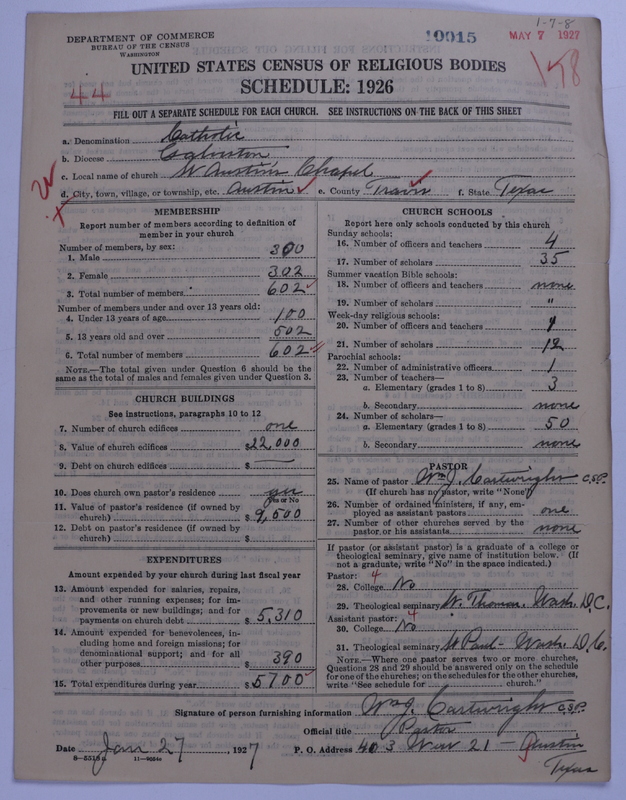 1-7-8
DEPARTMENT OF COMMERCE
BUREAU OF THE CENSUS
WASHINGTON
10015
MAY 7 1927
158
UNITED STATES CENSUS OF RELIGIOUS BODIES
44
SCHEDULE: 1926
FILL OUT A SEPARATE SCHEDULE FOR EACH CHURCH. SEE INSTRUCTIONS ON THE BACK OF THIS SHEET
a. Denomination Catholic
b. Diocese Galveston
c. Local name of church St Austin's Chapel
d. City, town, village, or township, etc. Austin e. County Travis f. State Texas
MEMBERSHIP
Report number of members according to definition of member in your church
Number of members, by sex:
1. Male 300
2. Female 302
3. Total number of members 602
Number of members under and over 13 years old:
4. Under 13 years of age 100
5. 13 years old and over 502
6. Total number of members 602
NOTE.—The total given under Question 6 should be
same as the total of males and females given under Question 3.
CHURCH BUILDINGS
See instructions, paragraphs 10 to 12
7. Number of church edifices one
8. Value of church edifices $22,000
9. Debt on church edifices $ —
10. Does church own pastor's residence yes
Yes or No
11. Value of pastor's residence (if owned by
church) $ 9,500
12. Debt on pastor's residence (if owned by
church) $
EXPENDITURES
Amount expended by your church during last fiscal year
13. Amount expended for salaries, repairs,
and other running expenses; for im-
provements or new buildings; and for
payments on church debt $ 5,310
14. Amount expended for benevolences, in-
cluding home and foreign missions; for
denominational support; and for all
other purposes $ 390
15. Total expenditures during year $ 5700
CHURCH SCHOOLS
Report here only schools conducted by this church
Sunday schools:
16. Number of officers and teachers 4
17. Number of scholars 35
Summer vacation Bible schools:
18. Number of officers and teachers none
19. Number of scholars "
Week-day religious schools:
20. Number of officers and teachers
21. Number of scholars 12
Parochial schools:
22. Number of administrative officers 1
23. Number of teachers—
a. Elementary (grades 1 to 8) 3
b. Secondary none
24. Number of scholars—
a. Elementary (grades 1 to 8) 50
b. Secondary none
PASTOR
25. Name of pastor Wm J. Cartwright C.S.P.
(If church has no pastor, write "None")
26. Number of ordained ministers, if any, em-
ployed as assistant pastors one
27. Number of other churches served by the
pastor or his assistants none
If pastor (or assistant pastor) is a graduate of a college or
theological seminary, give name of institution below. (If
not a graduate, write "No" in the space indicated.)
Pastor: 4
28. College No
29. Theological seminary St. Thomas, Wash. D.C.
Assistant pastor: 4
30. College No
31. Theological seminary St Paul - Wash. D.C.
NOTE.—Where one pastor serves two or more churches,
Questions 28 and 29 should be answered only on the schedule
for one of the churches; on the schedules for the other churches,
write "See schedule for church."
Signature of person furnishing information Wm J. Cartwright C.S.P.
Official title Pastor
Date Jan 27, 1927 P. O. Address 403 West 21 — Austin
Texas
8—5518a 11—9054a